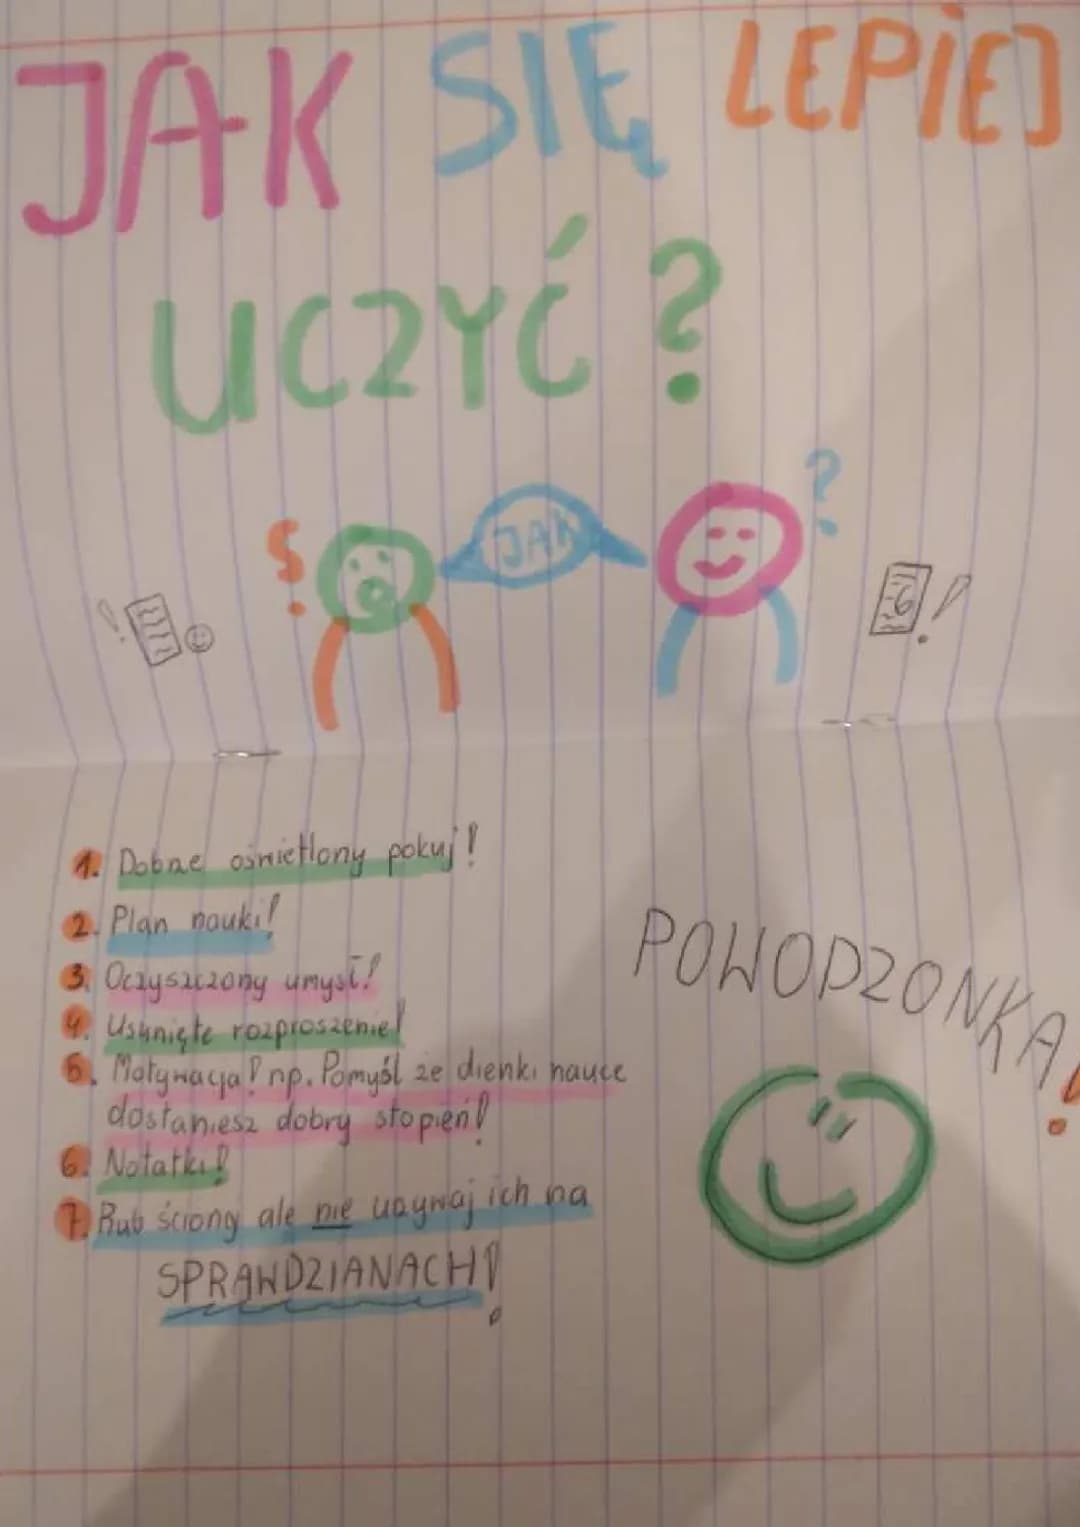 JAK SIĘ LEPIEJ
UCZYĆ?
?
JAK
?
!
6!
1. Dobrze oświetlony pokuj!
2. Plan nauki!
3. Oczyszczony umysł!
4. Usunięte rozproszenie!
5. Motywacja! np. Pomyśl że dienki nauce
dostaniesz dobry stopień!
6. Notatki!
7. Rub ściongi ale nie urzywaj ich na
SPRAWDZIANACH!
POWODZONKA!